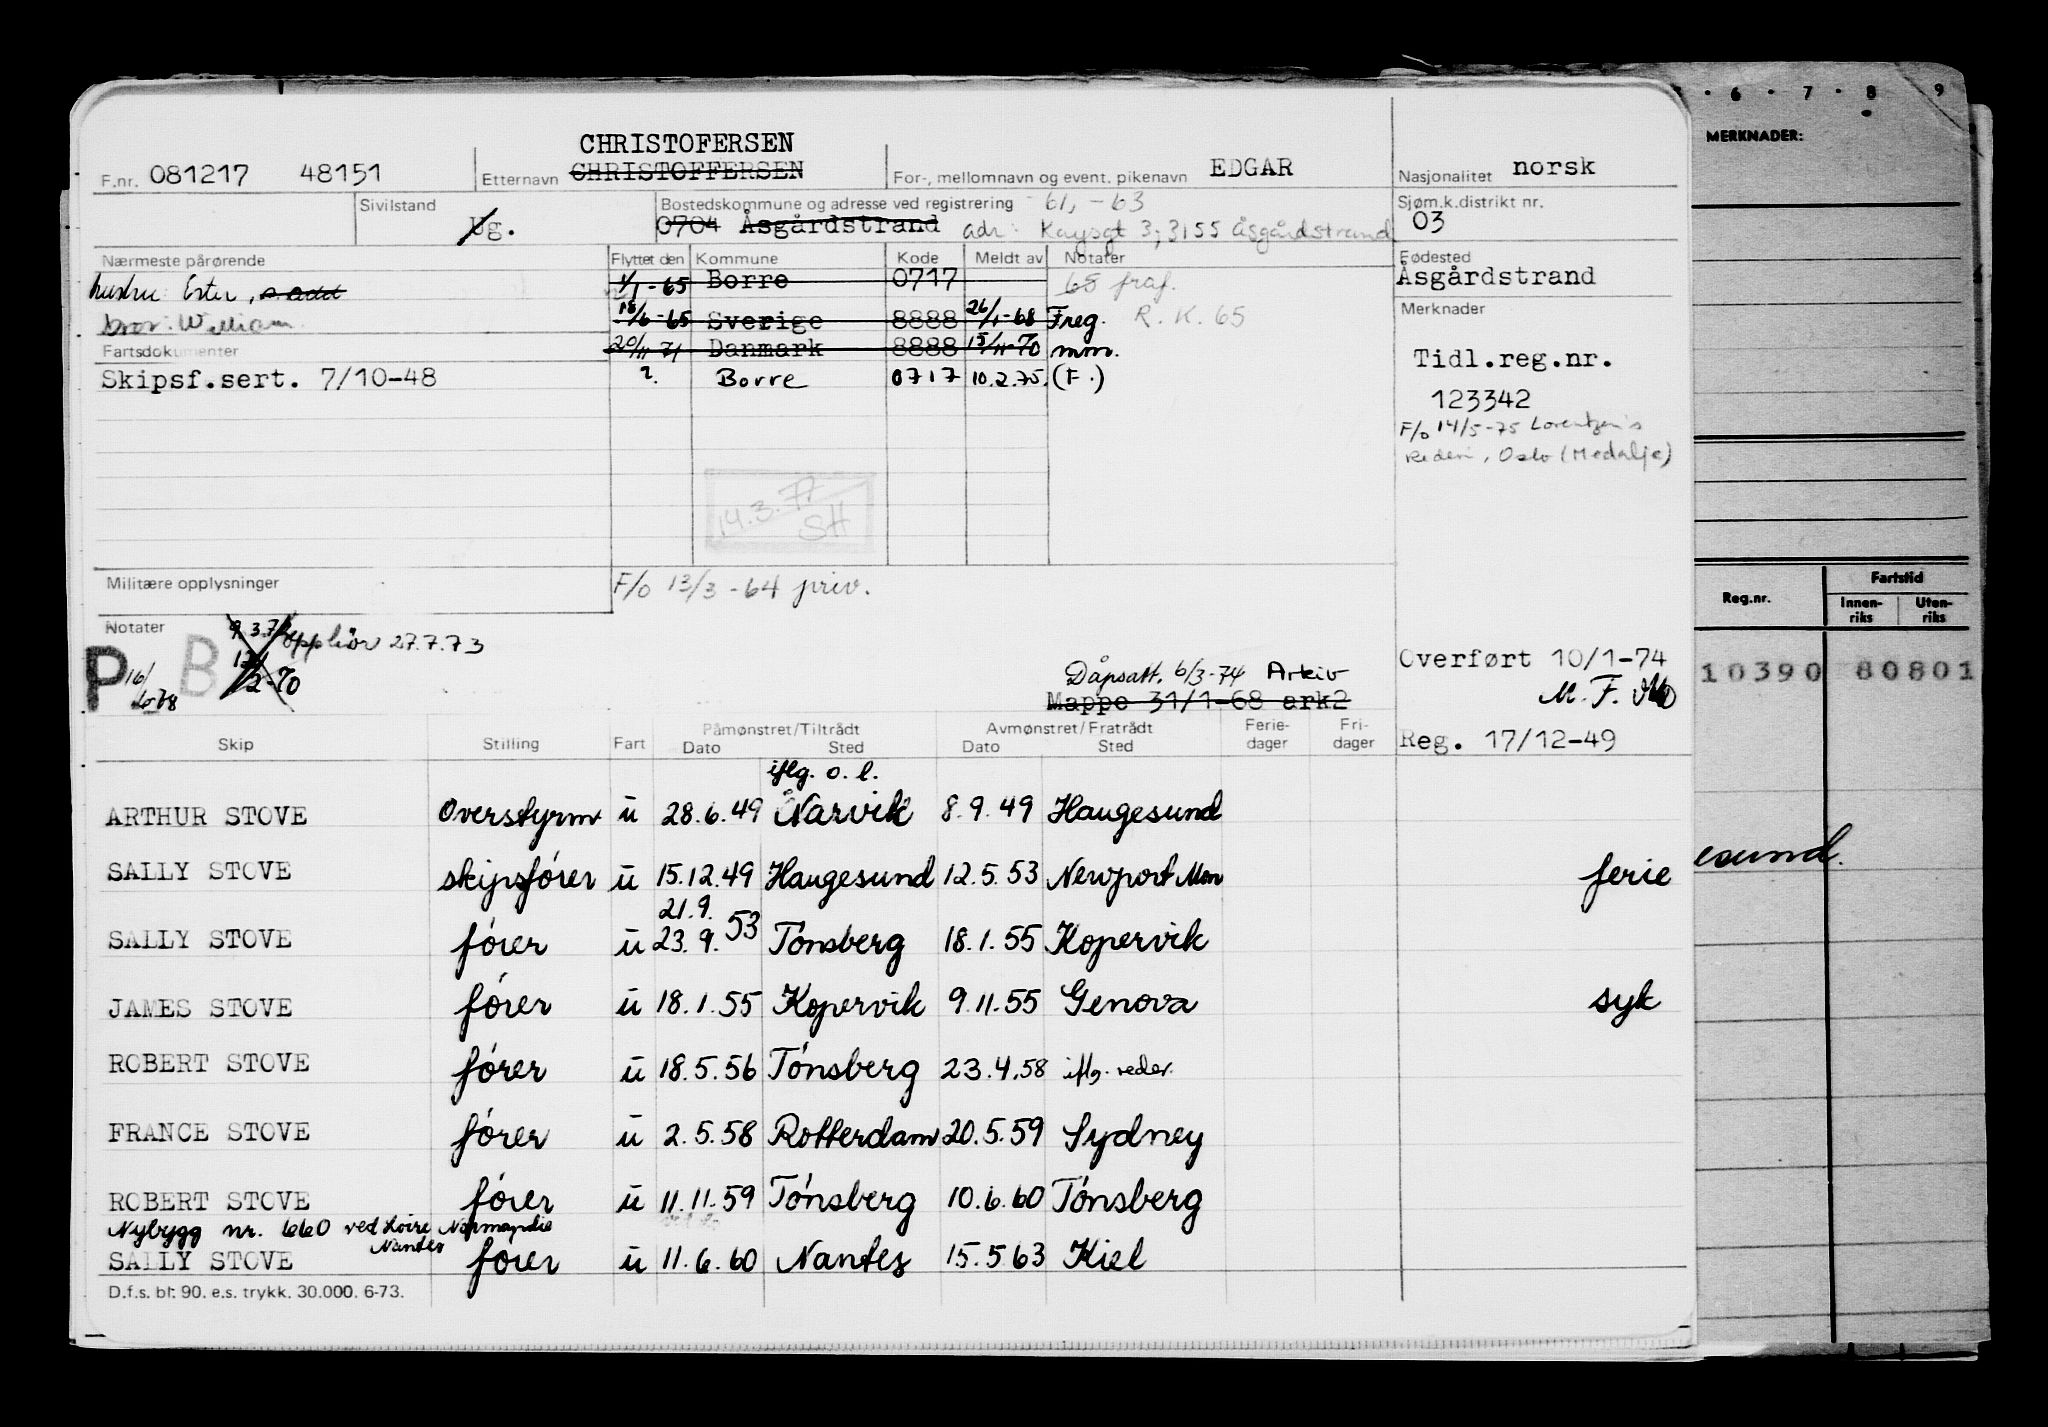 CHRISTOFERSEN
F.nr. 081217 48151 Etternavn CHRISTOFFERSEN For-, mellomnavn og event. pikenavn EDGAR Nasjonalitet norsk
Sivilstand Ug. Bostedskommune og adresse ved registrering 61, -63 Sjøm.k.distrikt nr.
0704 Åsgårdstrand adr: Kaysgt 3, 3155 Åsgårdstrand 03
Nærmeste pårørende Flyttet den Kommune Kode Meldt av Notater Fødested
hustru Ester, s. add 1/1-65 Borre 0717 65 fraf. Åsgårdstrand
bror: William 18/6-65 Sverige 8888 26/1-68 Freg. R.K. 65 Merknader
Fartsdokumenter 20/11 71 Danmark 8888 15/11-70 mm. Tidl.reg.nr.
Skipsf.sert. 7/10-48 ?. Borre 0717 10.2.75. (F.)
123342
F/o 14/5-75 Lorentzen's
Rederi, Oslo (Medalje)
14.3.77
SH
Militære opplysninger F/o 13/3-64 priv.
Notater Opphør 27.7.73
P B 2-70
Dåpsatt. 6/3-74 Arkiv Overført 10/1-74
Mappe 31/1-68 ark2 M. F.
Reg. 17/12-49
Skip Stilling Fart Påmønstret/Tiltrådt Dato Sted Avmønstret/Fratrådt Dato Sted Ferie-dager Fri-dager
iflg. o. l.
ARTHUR STOVE Overstyrm u 28.6.49 Narvik 8.9.49 Haugesund
SALLY STOVE skipsfører u 15.12.49 Haugesund 12.5.53 Newport Mon ferie
21.9.
SALLY STOVE fører u 23.9.53 Tønsberg 18.1.55 Kopervik
JAMES STOVE fører u 18.1.55 Kopervik 9.11.55 Genova syk
ROBERT STOVE fører u 18.5.56 Tønsberg 23.4.58 iflg. reder.
FRANCE STOVE fører u 2.5.58 Rotterdam 20.5.59 Sydney
ROBERT STOVE fører u 11.11.59 Tønsberg 10.6.60 Tønsberg
Nybygg nr. 660 ved Loire Normandie
Nantes
SALLY STOVE fører u 11.6.60 Nantes 15.5.63 Kiel
D.f.s. bl. 90. e.s. trykk. 30.000. 6-73.
6 · 7 · 8 9
MERKNADER:
Reg.nr. Fartstid
Innen-riks Uten-riks
10390 80801
esund.